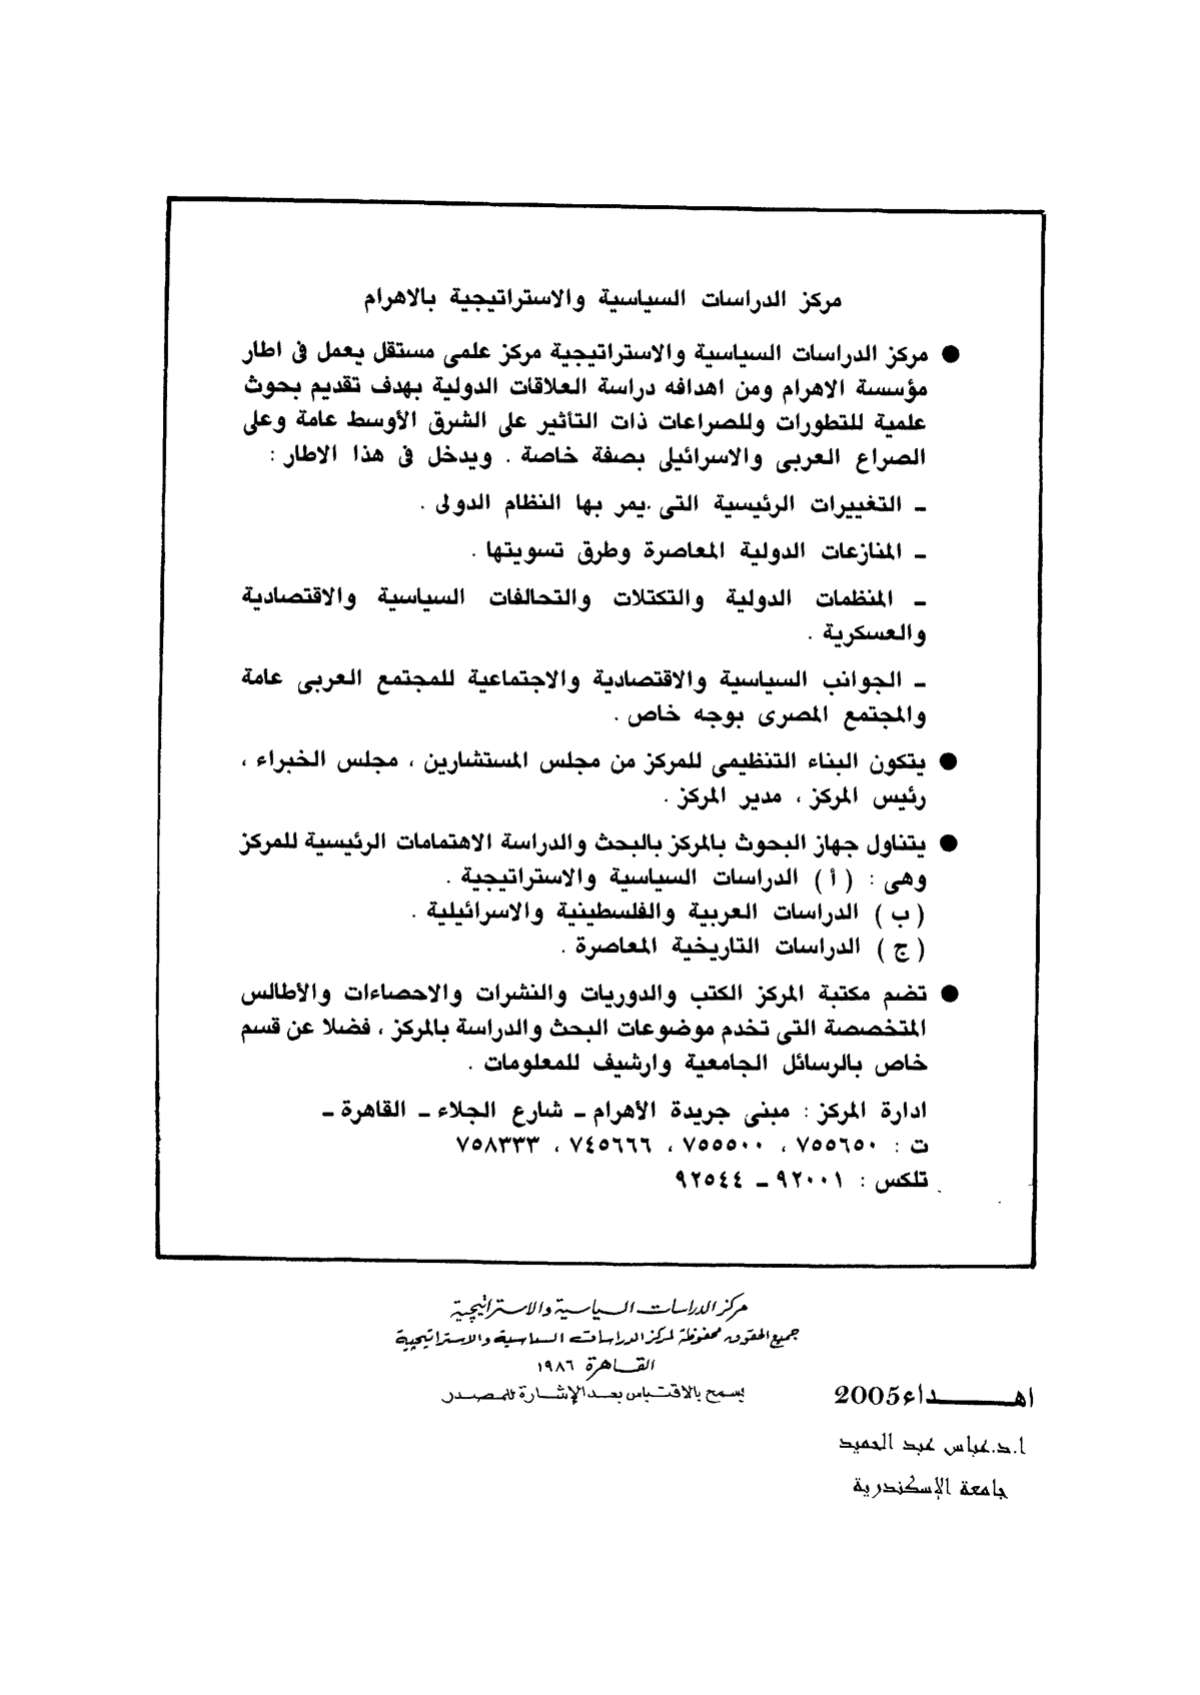 مركز الدراسات السياسية والاستراتيجية بالاهرام
● مركز الدراسات السياسية والاستراتيجية مركز علمى مستقل يعمل فى اطار
مؤسسة الاهرام ومن اهدافه دراسة العلاقات الدولية بهدف تقديم بحوث
علمية للتطورات وللصراعات ذات التأثير على الشرق الأوسط عامة وعلى
الصراع العربى والاسرائيلى بصفة خاصة . ويدخل فى هذا الاطار :
ـ التغييرات الرئيسية التى يمر بها النظام الدولى .
ـ المنازعات الدولية المعاصرة وطرق تسويتها .
ـ المنظمات الدولية والتكتلات والتحالفات السياسية والاقتصادية
والعسكرية .
ـ الجوانب السياسية والاقتصادية والاجتماعية للمجتمع العربى عامة
والمجتمع المصرى بوجه خاص .
● يتكون البناء التنظيمى للمركز من مجلس المستشارين ، مجلس الخبراء ،
رئيس المركز ، مدير المركز .
● يتناول جهاز البحوث بالمركز بالبحث والدراسة الاهتمامات الرئيسية للمركز
وهى : ( أ ) الدراسات السياسية والاستراتيجية .
( ب ) الدراسات العربية والفلسطينية والاسرائيلية .
( ج ) الدراسات التاريخية المعاصرة .
● تضم مكتبة المركز الكتب والدوريات والنشرات والاحصاءات والأطالس
المتخصصة التى تخدم موضوعات البحث والدراسة بالمركز ، فضلا عن قسم
خاص بالرسائل الجامعية وارشيف للمعلومات .
ادارة المركز : مبنى جريدة الأهرام ـ شارع الجلاء ـ القاهرة ـ
ت : ٧٥٥٦٥٠ ، ٧٥٥٥٠٠ ، ٧٤٥٦٦٦ ، ٧٥٨٣٣٣
تلكس : ٩٢٠٠١ ـ ٩٢٥٤٤
مركز الدراسات السياسية والاستراتيجية
جميع الحقوق محفوظة لمركز الدراسات السياسية والاستراتيجية
القاهرة ١٩٨٦
يسمح بالاقتباس بعد الإشارة للمصدر
اهـــــداء 2005
ا.د.عباس عبد الحميد
جامعة الإسكندرية